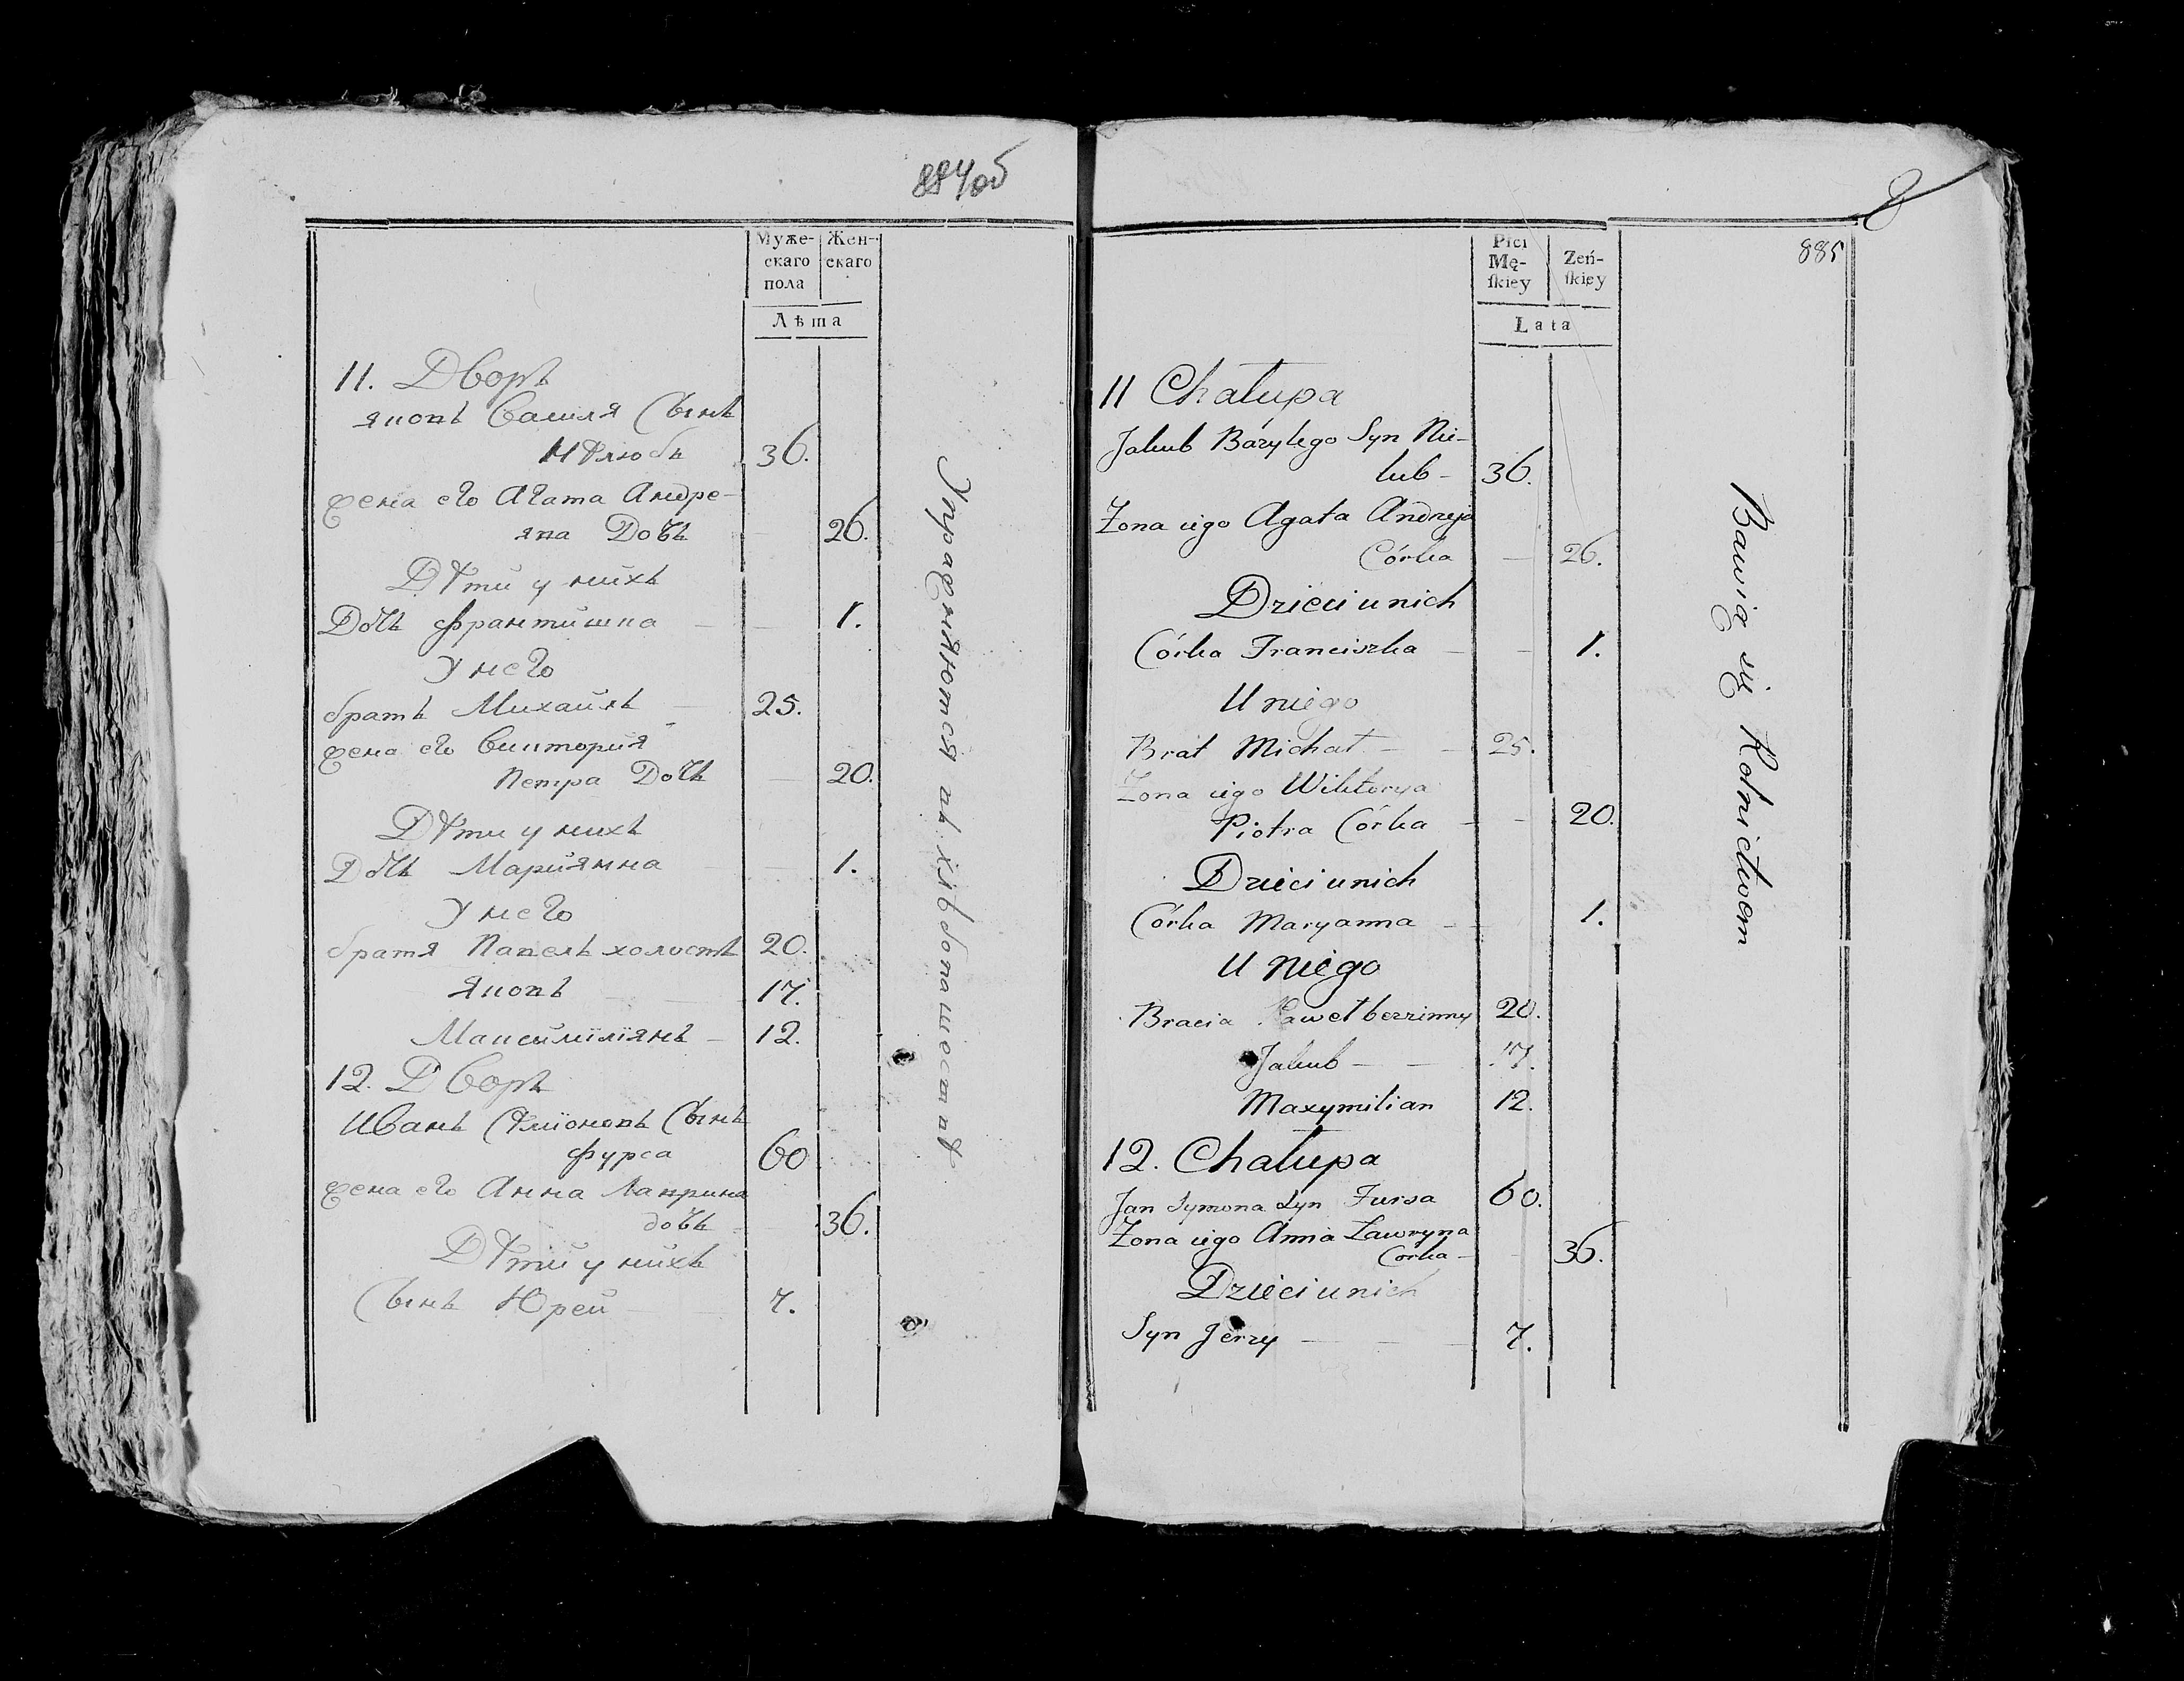 884об
Муже- Жен-
скаго скаго
пола
Лѣта
11. Дворъ
Яковъ Василя Сынъ
Нѣлюбъ 36.
жена его Агата Андре-
ява Дочь — 26.
Дѣти у нихъ
Дочь Франтишка — — 1.
У него
братъ Михайлъ — 25.
жена его Виктория
Петра Дочь — 20.
Дѣти у нихъ
Дочь Мариянна — — 1.
У него
братя Павелъ холостъ 20.
Яковъ — — 17.
Максимилиянъ — 12.
12. Дворъ
Иванъ Сѣмионовъ Сынъ
Фурса 60
жена его Анна Лаврина
дочь — 36.
Дѣти у нихъ
Сынъ Юрей — — 7.
Упражняются въ хлѣбопашествѣ
8
885
Płci Zeń-
Mę- skiey
skiey
Lata
11 Chałupa
Jakub Bazylego Syn Nie-
lub - 36.
Zona iego Agata Andrzeja
Córka — 26.
Dzieci u nich
Córka Franciszka — — 1.
U niego
Brat Michał — — 25.
Zona iego Wiktorya
Piotra Córka — — 20.
Dzieci u nich
Córka Maryanna — 1.
U niego
Bracia Paweł bezżinny 20.
Jakub — — 17.
Maxymilian 12.
12. Chałupa
Jan Symona Syn Fursa 60.
Zona iego Anna Ławryna
Corka — — 36.
Dzieci u nich
Syn Jerzy — — — 7.
Bawią się Rolnictwem